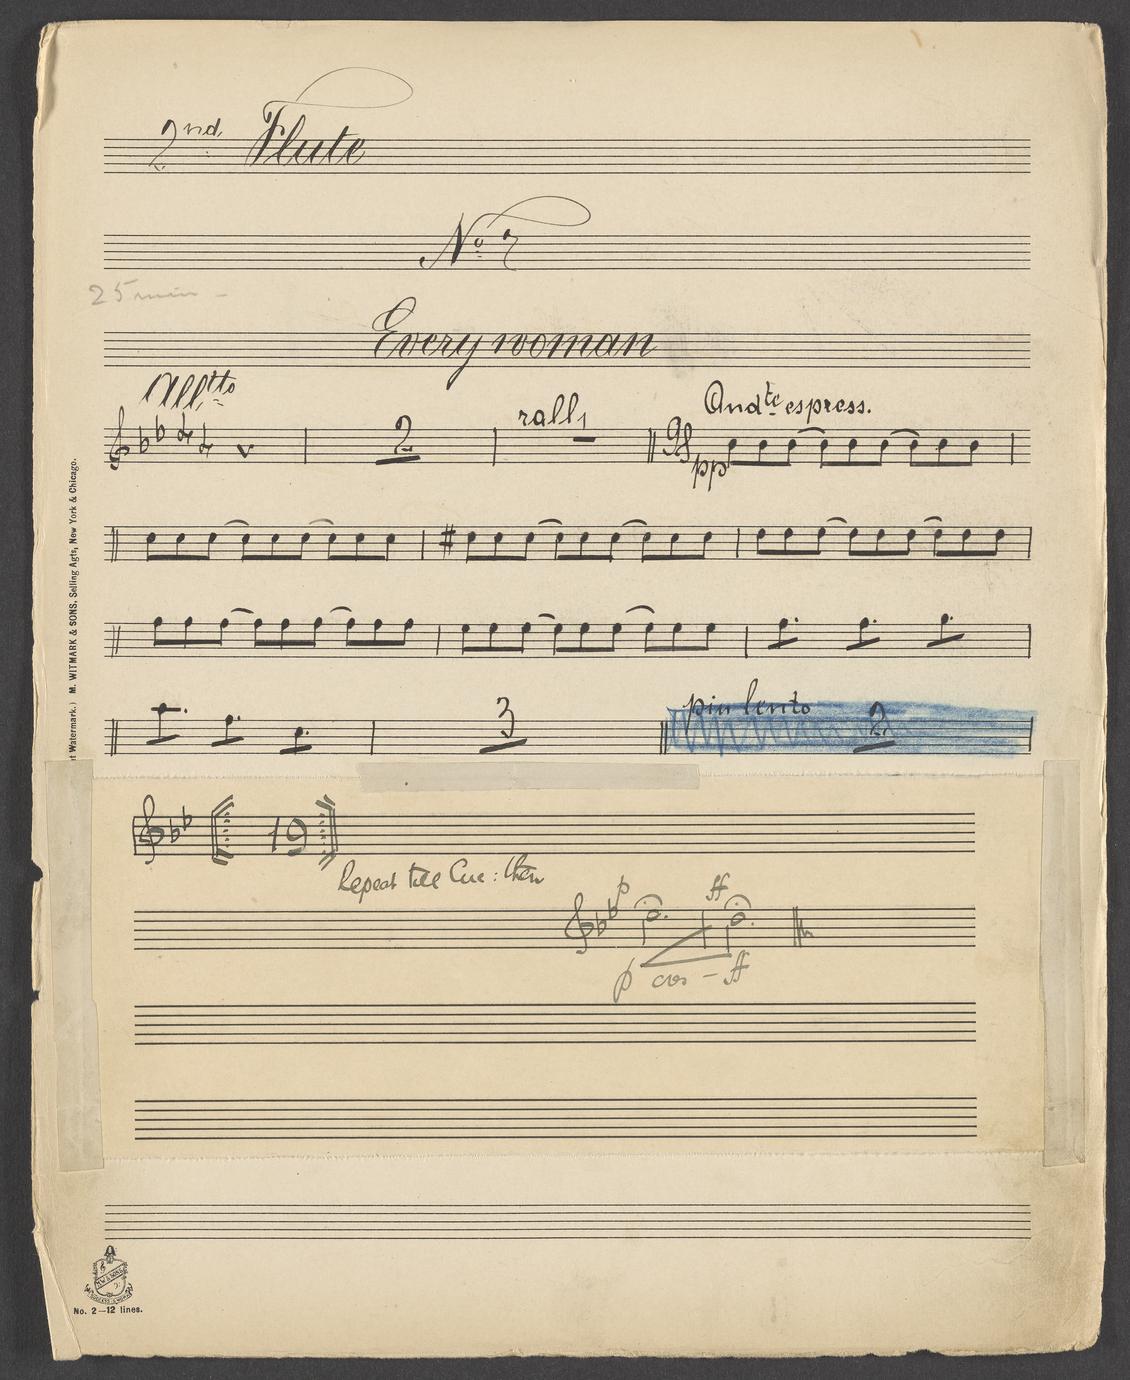 2nd. Flute
No. 7
25 min -
Every woman
All.tto
2
rall.
Andte espress.
9/8
pp
3
piu lento
2
19
Repeat till Cue: then
p
ff
p cres - ff
Watermark.) M. WITMARK & SONS, Selling Agts, New York & Chicago.
No. 2—12 lines.